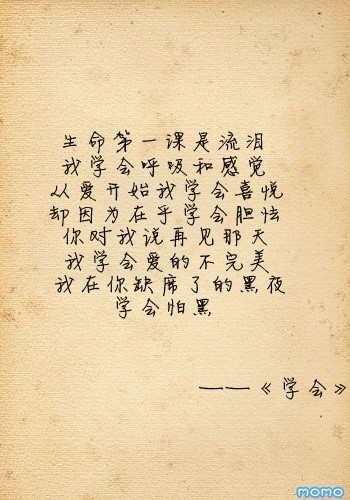 生命第一课是流泪
我学会呼吸和感觉
从爱开始我学会喜悦
却因为在乎学会胆怯
你对我说再见那天
我学会爱的不完美
我在你缺席了的黑夜
学会怕黑
——《学会》
momo